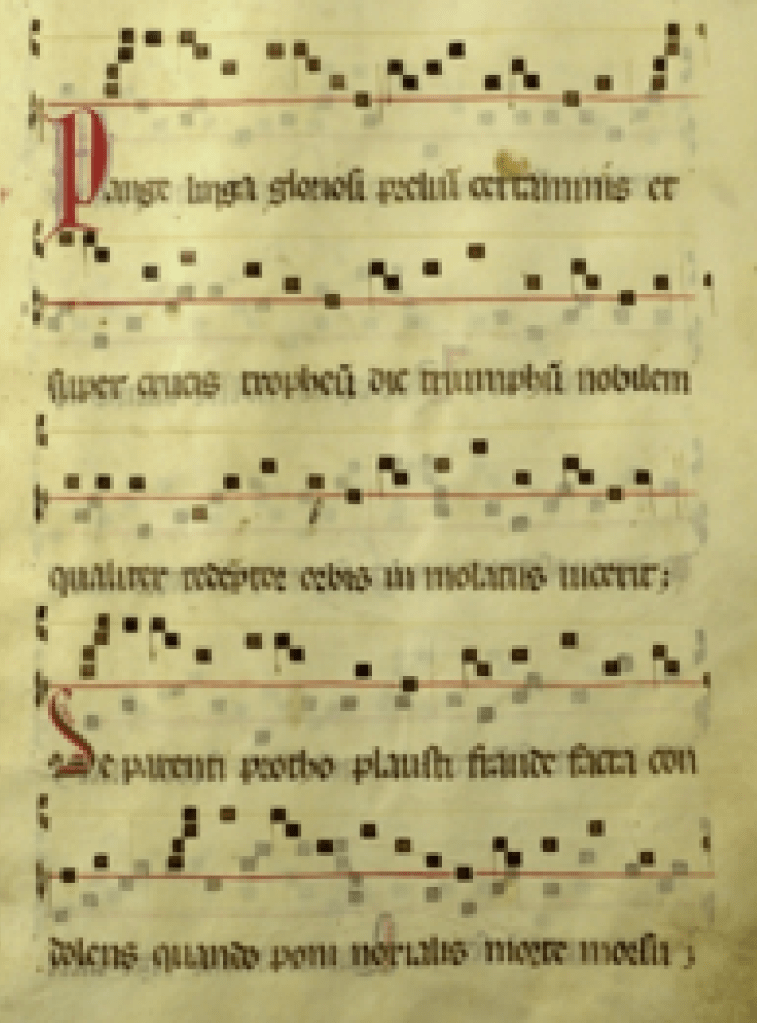 Pange lingua gloriosi preliũ certaminis et
super crucis tropheũ dic triumphũ nobilem
qualiter redẽptor orbis in molatus uicerit;
De parenti protho plausti fraude facta con
dolens quando pomi noxialis morte morsu ;